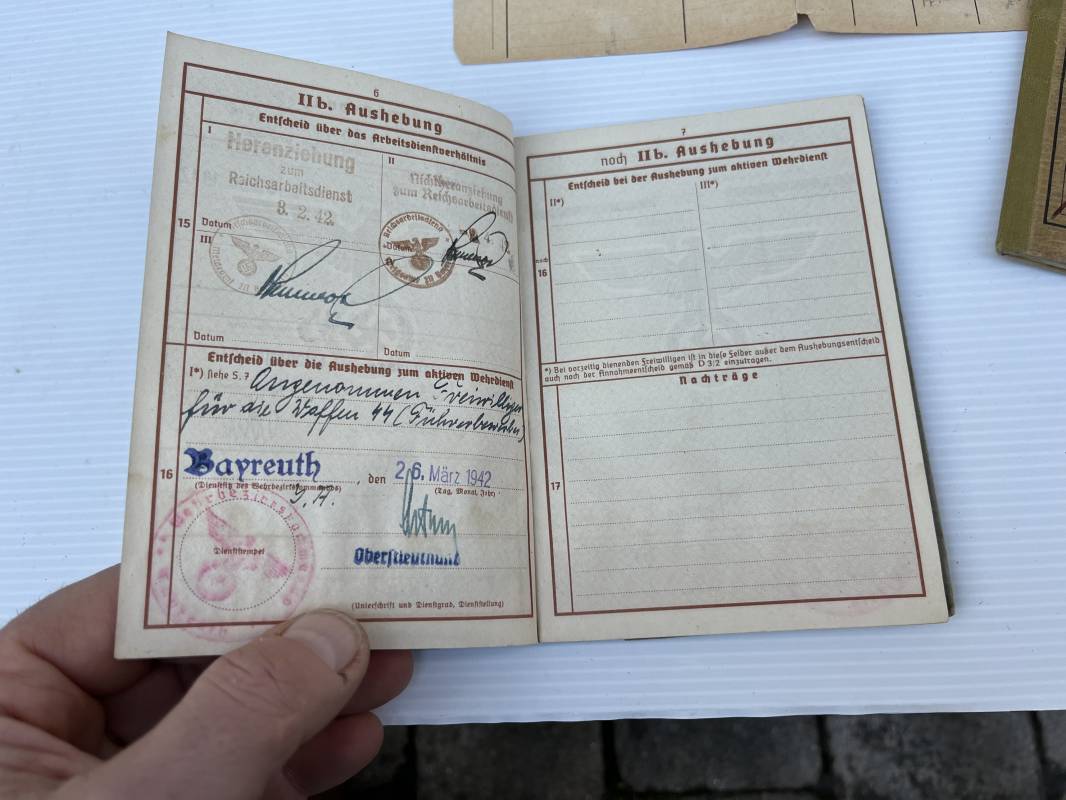 6
IIb. Aushebung
Entscheid über das Arbeitsdienstverhältnis
15
I
Heranziehung
zum
Reichsarbeitsdienst
8. 2. 42.
Datum
II
Nichtheranziehung
zum Reichsarbeitsdienst
Datum
III
Datum
Datum
Entscheid über die Aushebung zum aktiven Wehrdienst
16
I*) siehe S. 7 Angenommen Freiwilliger
für die Waffen SS (Führerbewerber)
Bayreuth, den 26. März 1942
(Dienstsitz des Wehrbezirkskommandos) (Tag, Monat, Jahr)
Dienststempel
Oberstleutnant
(Unterschrift und Dienstgrad, Dienststellung)
7
noch IIb. Aushebung
Entscheid bei der Aushebung zum aktiven Wehrdienst
noch
16
II*)
III*)
*) Bei vorzeitig dienenden Freiwilligen ist in diese Felder außer dem Aushebungsentscheid
auch noch der Annahmeentscheid gemäß D 3/2 einzutragen.
Nachträge
17